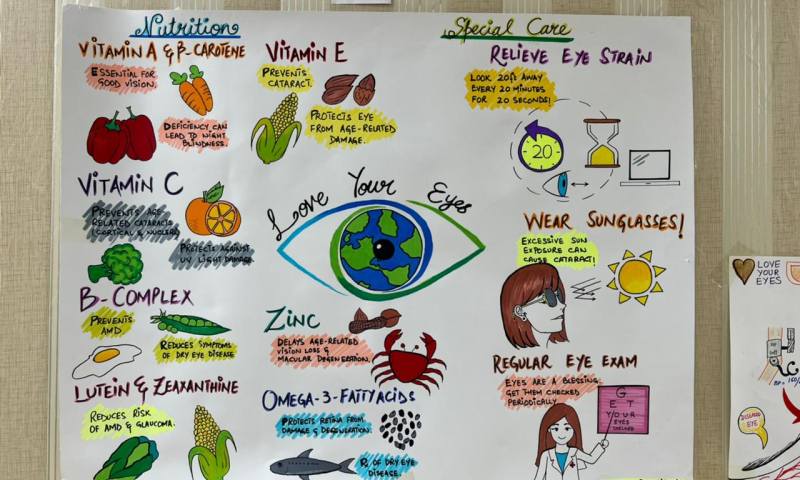 Nutrition
VITAMIN A & β-CAROTENE
ESSENTIAL FOR
GOOD VISION.
DEFICIENCY CAN
LEAD TO NIGHT
BLINDNESS.
VITAMIN C
PREVENTS AGE-
RELATED CATARACT
(CORTICAL & NUCLEAR)
PROTECTS AGAINST
UV LIGHT DAMAGE
B-COMPLEX
PREVENTS
AMD.
REDUCES SYMPTOMS
OF DRY EYE DISEASE
LUTEIN & ZEAXANTHINE
REDUCES RISK
OF AMD & GLAUCOMA.
VITAMIN E
PREVENTS
CATARACT.
PROTECTS EYE
FROM AGE-RELATED
DAMAGE.
Love Your Eyes
ZINC
DELAYS AGE-RELATED
VISION LOSS &
MACULAR DEGENERATION.
OMEGA-3-FATTY ACIDS
PROTECTS RETINA FROM
DAMAGE & DEGENERATION.
OF DRY EYE
DISEASE.
Special Care
RELIEVE EYE STRAIN
LOOK 20ft AWAY
EVERY 20 MINUTES
FOR 20 SECONDS!
20
WEAR SUNGLASSES!
EXCESSIVE SUN
EXPOSURE CAN
CAUSE CATARACT!
REGULAR EYE EXAM
EYES ARE A BLESSING.
GET THEM CHECKED
PERIODICALLY.
G
E T
YOUR
EYES
CHECKED
LOVE
YOUR
EYES
DISEASED
EYE